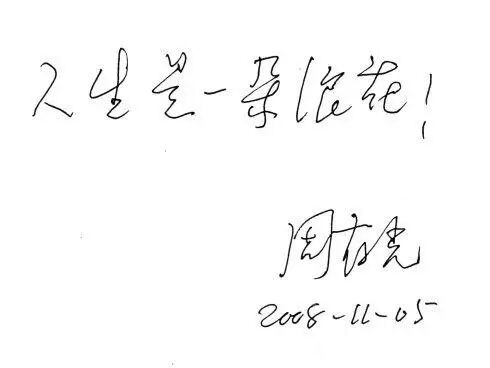 人生是一朵浪花!
周有光
2008-11-05